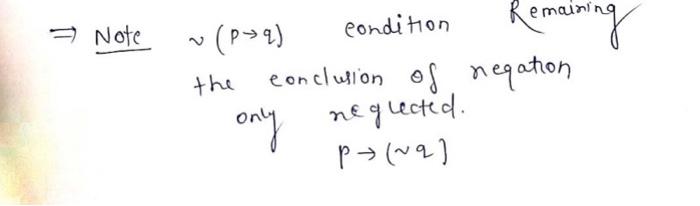 ⇒ Note ~(p→q) condition Remaining
the conclusion of negation
only neglected.
p→(~q)